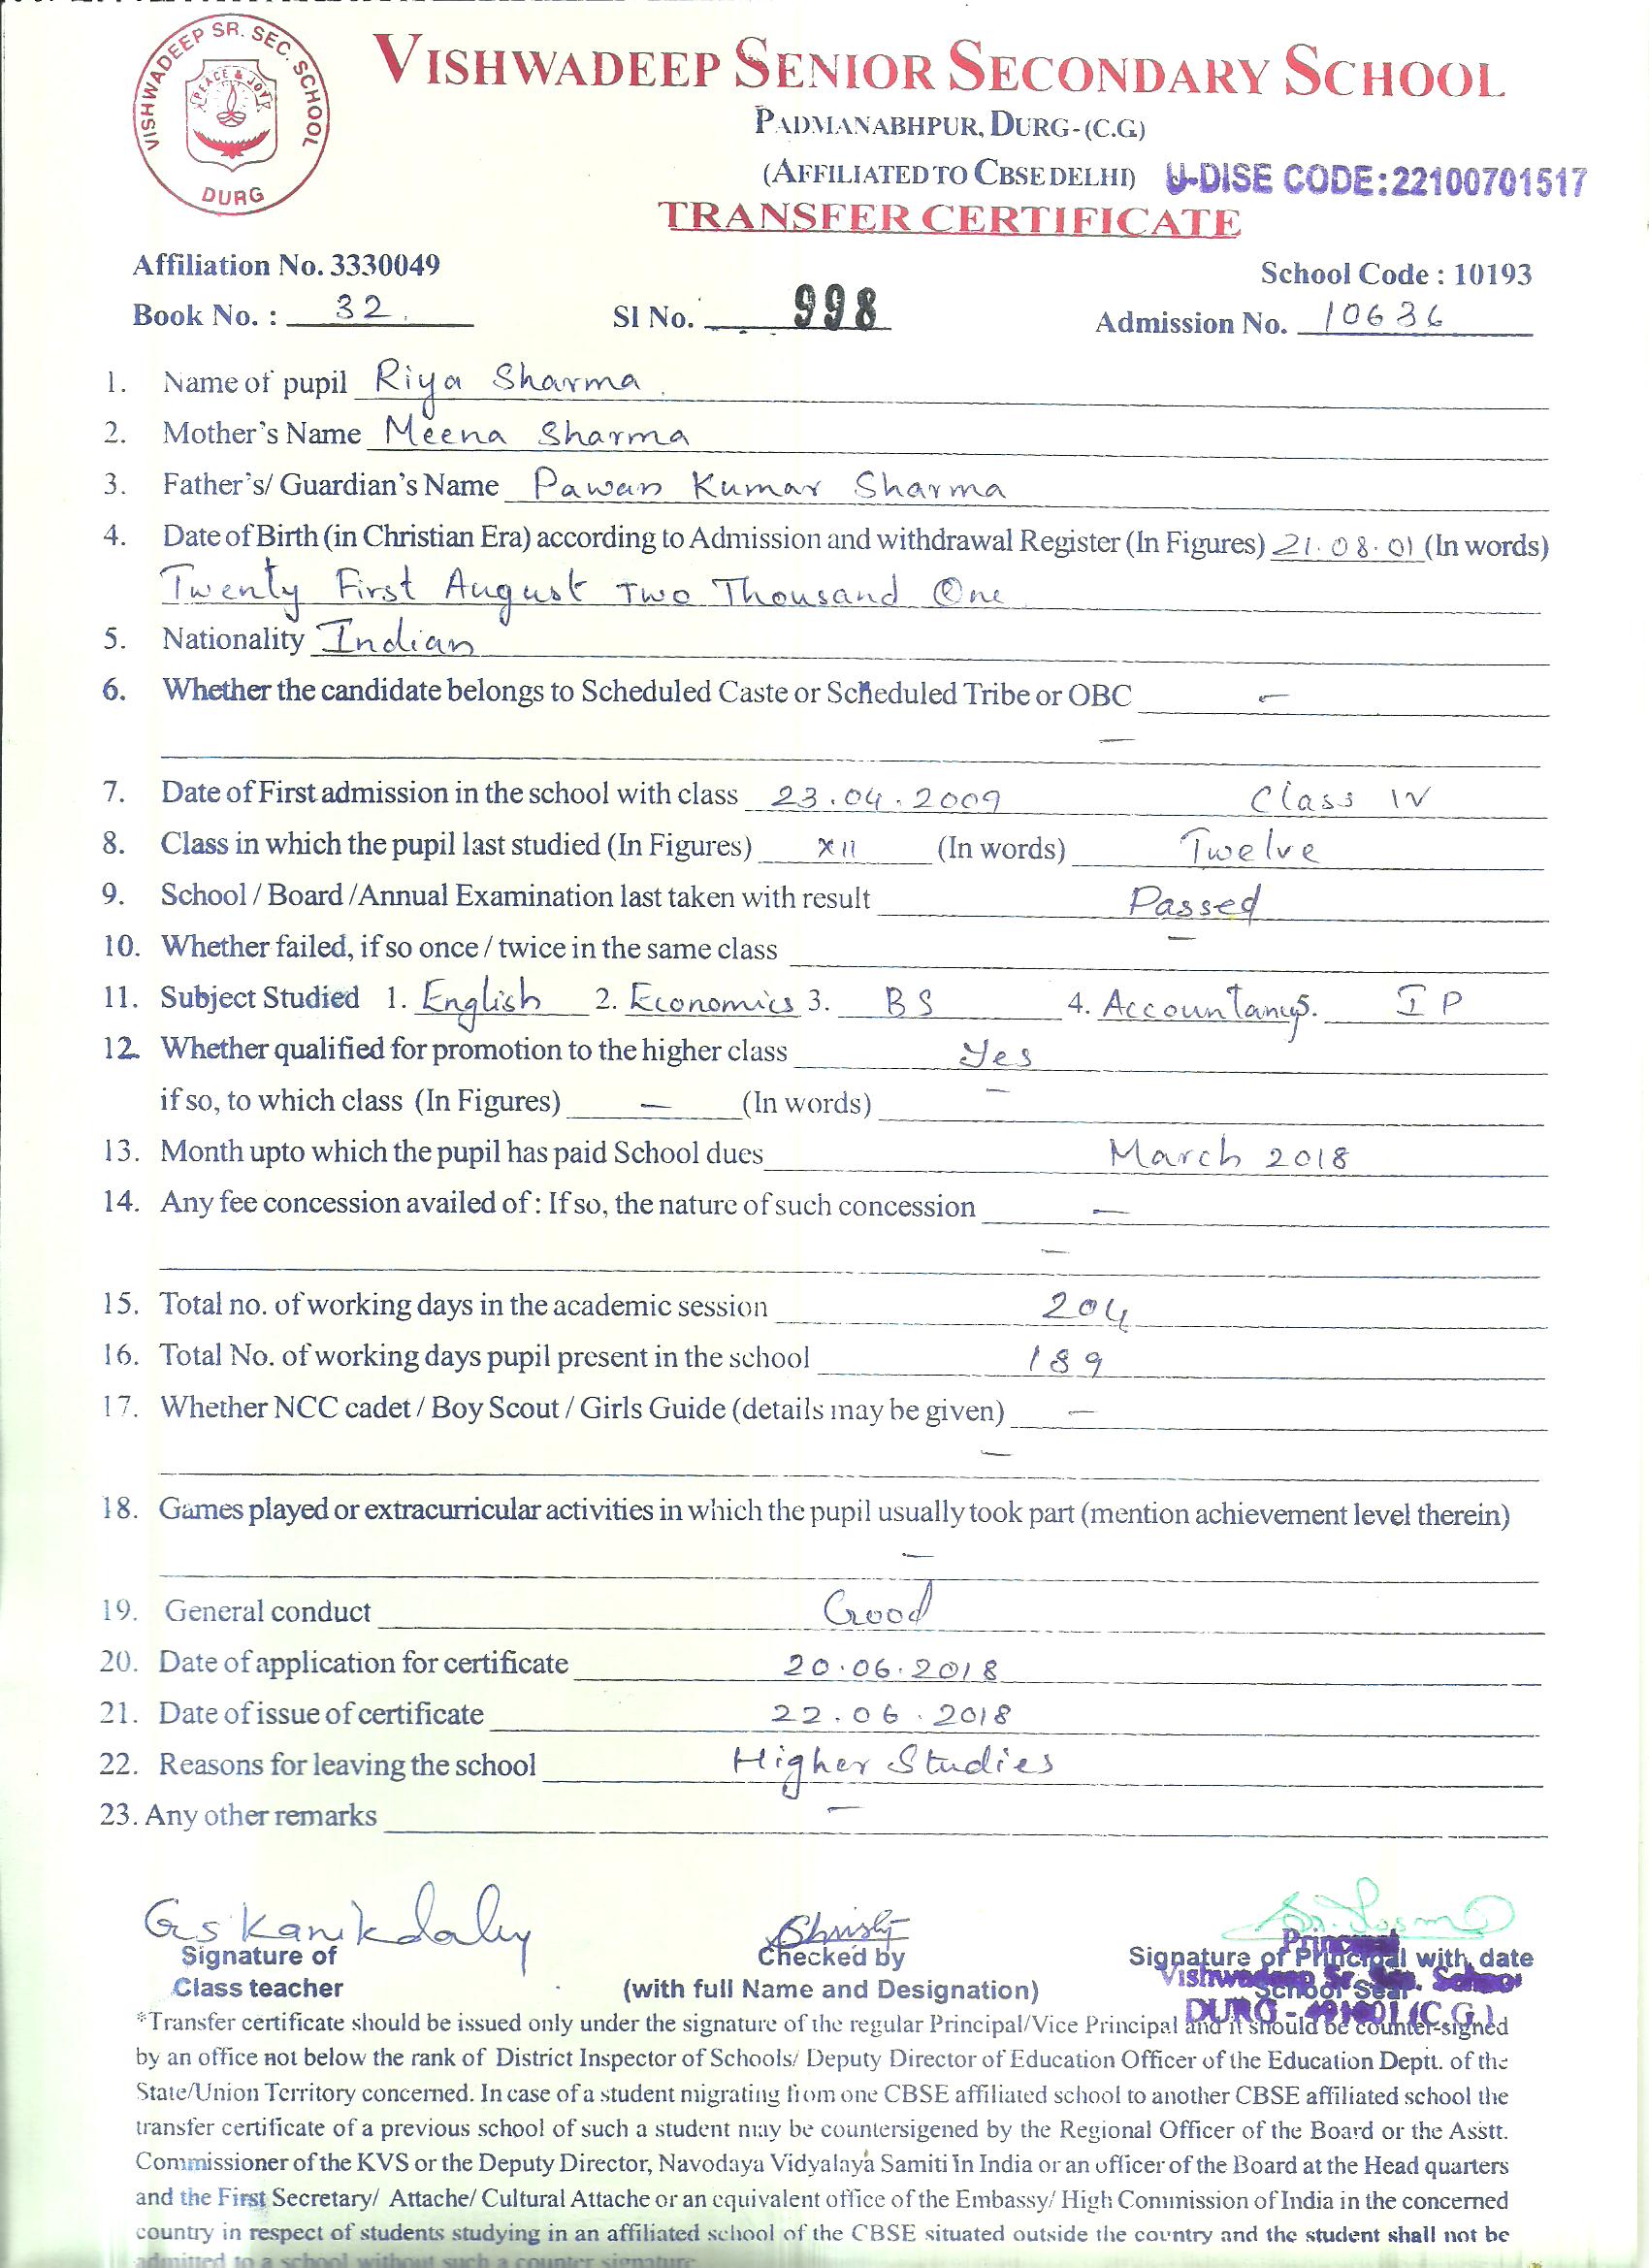 VISHWADEEP SR. SEC. SCHOOL
PEACE & JOY
DURG
VISHWADEEP SENIOR SECONDARY SCHOOL
PADMANABHPUR, DURG-(C.G)
(AFFILIATED TO CBSE DELHI) U-DISE CODE:22100701517
TRANSFER CERTIFICATE
Affiliation No. 3330049 School Code : 10193
Book No. : 32. Sl No. 998 Admission No. 10636
1. Name of pupil Riya Sharma
2. Mother's Name Meena Sharma
3. Father's/ Guardian's Name Pawan Kumar Sharma
4. Date of Birth (in Christian Era) according to Admission and withdrawal Register (In Figures) 21.08.01 (In words)
Twenty First August Two Thousand One
5. Nationality Indian
6. Whether the candidate belongs to Scheduled Caste or Scheduled Tribe or OBC –
–
7. Date of First admission in the school with class 23.04.2009 Class IV
8. Class in which the pupil last studied (In Figures) XII (In words) Twelve
9. School / Board /Annual Examination last taken with result Passed
10. Whether failed, if so once / twice in the same class –
11. Subject Studied 1. English 2. Economics 3. BS 4. Accountancy 5. IP
12. Whether qualified for promotion to the higher class Yes
if so, to which class (In Figures) – (In words) –
13. Month upto which the pupil has paid School dues March 2018
14. Any fee concession availed of : If so, the nature of such concession –
–
15. Total no. of working days in the academic session 204
16. Total No. of working days pupil present in the school 189
17. Whether NCC cadet / Boy Scout / Girls Guide (details may be given) –
–
18. Games played or extracurricular activities in which the pupil usually took part (mention achievement level therein)
–
19. General conduct Good
20. Date of application for certificate 20.06.2018
21. Date of issue of certificate 22.06.2018
22. Reasons for leaving the school Higher Studies
23. Any other remarks –
Signature of Checked by Signature of Principal with date
Principal
Class teacher (with full Name and Designation) School Seal
Vishwadeep Sr. Sec. School
DURG - 491001 (C.G.)
*Transfer certificate should be issued only under the signature of the regular Principal/Vice Principal and it should be counter-signed
by an office not below the rank of District Inspector of Schools/ Deputy Director of Education Officer of the Education Deptt. of the
State/Union Territory concerned. In case of a student migrating from one CBSE affiliated school to another CBSE affiliated school the
transfer certificate of a previous school of such a student may be countersigned by the Regional Officer of the Board or the Asstt.
Commissioner of the KVS or the Deputy Director, Navodaya Vidyalaya Samiti in India or an officer of the Board at the Head quarters
and the First Secretary/ Attache/ Cultural Attache or an equivalent office of the Embassy/ High Commission of India in the concerned
country in respect of students studying in an affiliated school of the CBSE situated outside the country and the student shall not be
admitted to a school without such a counter signature